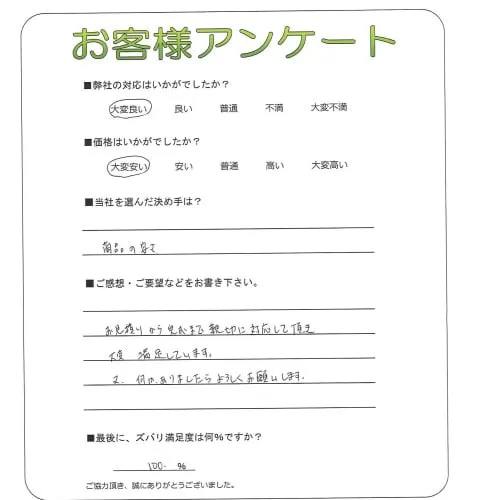 お客様アンケート
■弊社の対応はいかがでしたか？
大変良い 良い 普通 不満 大変不満
■価格はいかがでしたか？
大変安い 安い 普通 高い 大変高い
■当社を選んだ決め手は？
商品の安さ
■ご感想・ご要望などをお書き下さい。
お見積りから 完工まで 親切に対応して頂き
大変 満足しています。
又、何かありましたらよろしくお願いします。
■最後に、ズバリ満足度は何%ですか？
100. %
ご協力頂き、誠にありがとうございました。